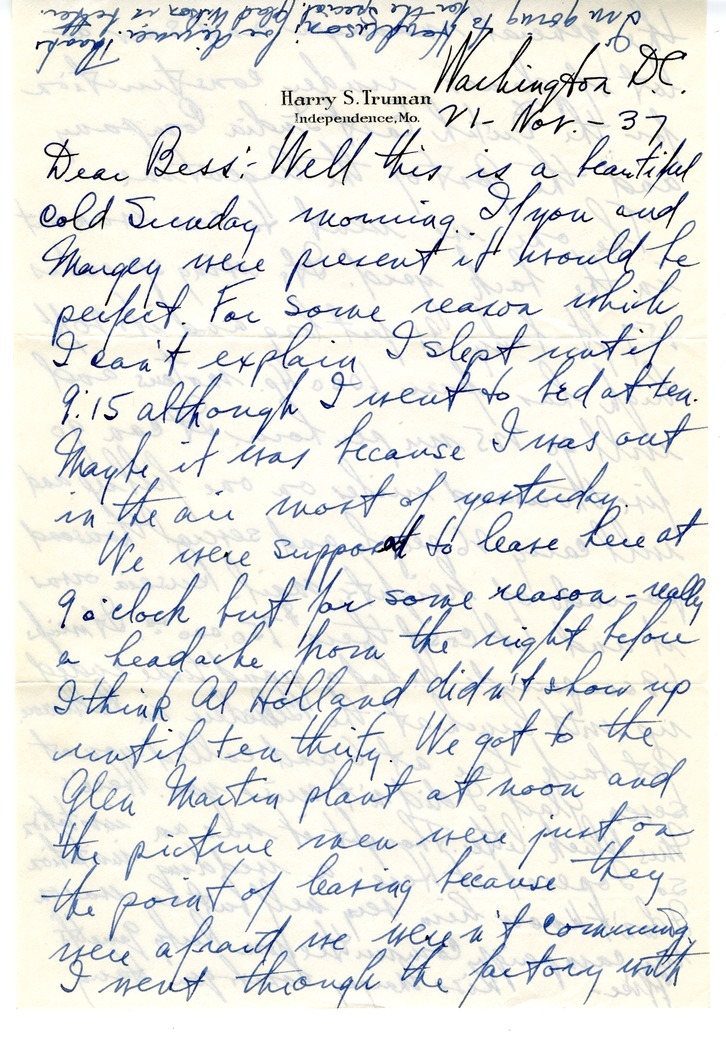 I'm going to
Hopkinsons for dinner. Thanks
for the special. Glad Wilson is better.
Washington D.C.
Harry S. Truman
Independence, Mo.
21 - Nov. - 37
Dear Bess:- Well this is a beautiful
cold Sunday morning. If you and
Margey were present it would be
perfect. For some reason which
I can't explain I slept until
9:15 although I went to bed at ten.
Maybe it was because I was out
in the air most of yesterday.
We were supposed to leave here at
9 o'clock but for some reason - really
a headache from the night before
I think Al Holland didn't show up
until ten thirty. We got to the
Glen Martin plant at noon and
the picture men were just on
the point of leaving because they
were afraid we weren't comming,
I went through the factory with